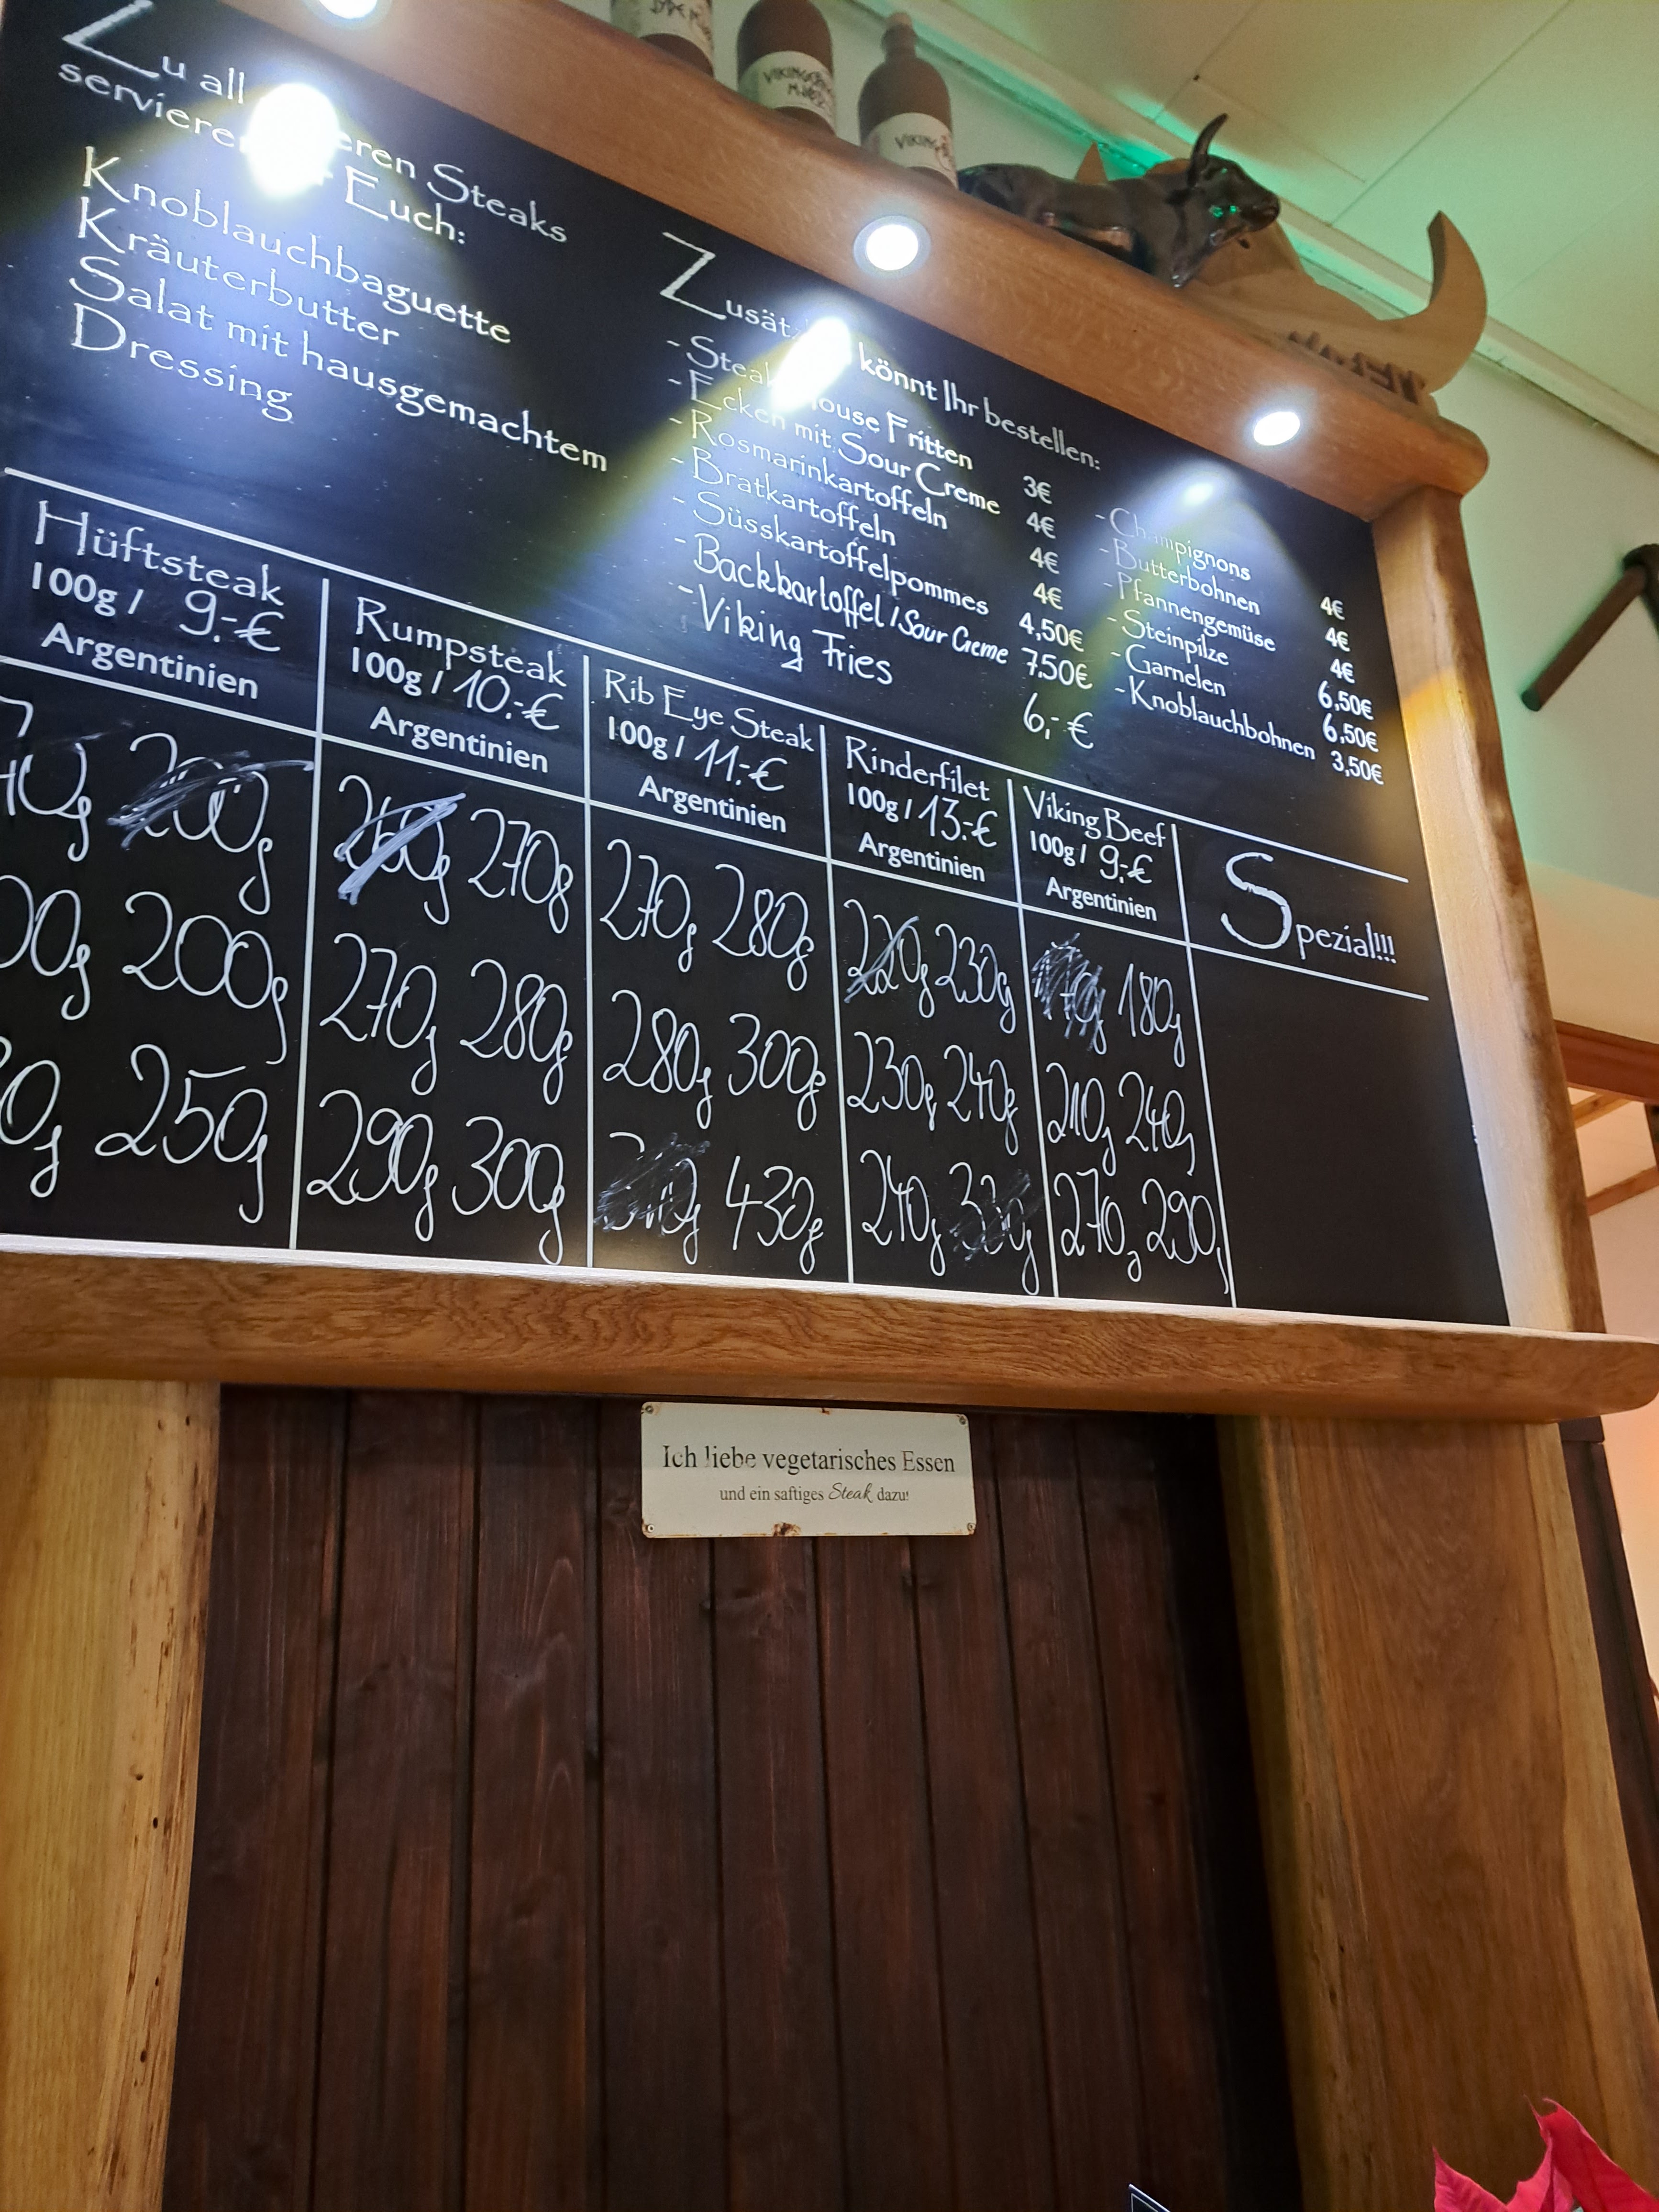 Zu all eren Steaks
servieren Euch:
Knoblauchbaguette
Kräuterbutter
Salat mit hausgemachtem
Dressing
Zusätz könnt Ihr bestellen:
- Steakhouse Fritten 3€
- Ecken mit Sour Creme 4€
- Rosmarinkartoffeln 4€
- Bratkartoffeln 4€
- Süsskartoffelpommes 4,50€
- Backkartoffel / Sour Creme 7,50€
- Viking Fries 6,-€
- Champignons 4€
- Butterbohnen 4€
- Pfannengemüse 4€
- Steinpilze 6,50€
- Garnelen 6,50€
- Knoblauchbohnen 3,50€
Hüftsteak
100g / 9.-€
Argentinien
200g
200g
250g
Rumpsteak
100g / 10.-€
Argentinien
260g 270g
270g 280g
290g 300g
Rib Eye Steak
100g / 11.-€
Argentinien
270g 280g
280g 300g
430g
Rinderfilet
100g / 13.-€
Argentinien
220g 230g
230g 240g
240g 330g
Viking Beef
100g / 9.-€
Argentinien
180g
210g 240g
270g 290g
Spezial!!!
Ich liebe vegetarisches Essen
und ein saftiges Steak dazu!